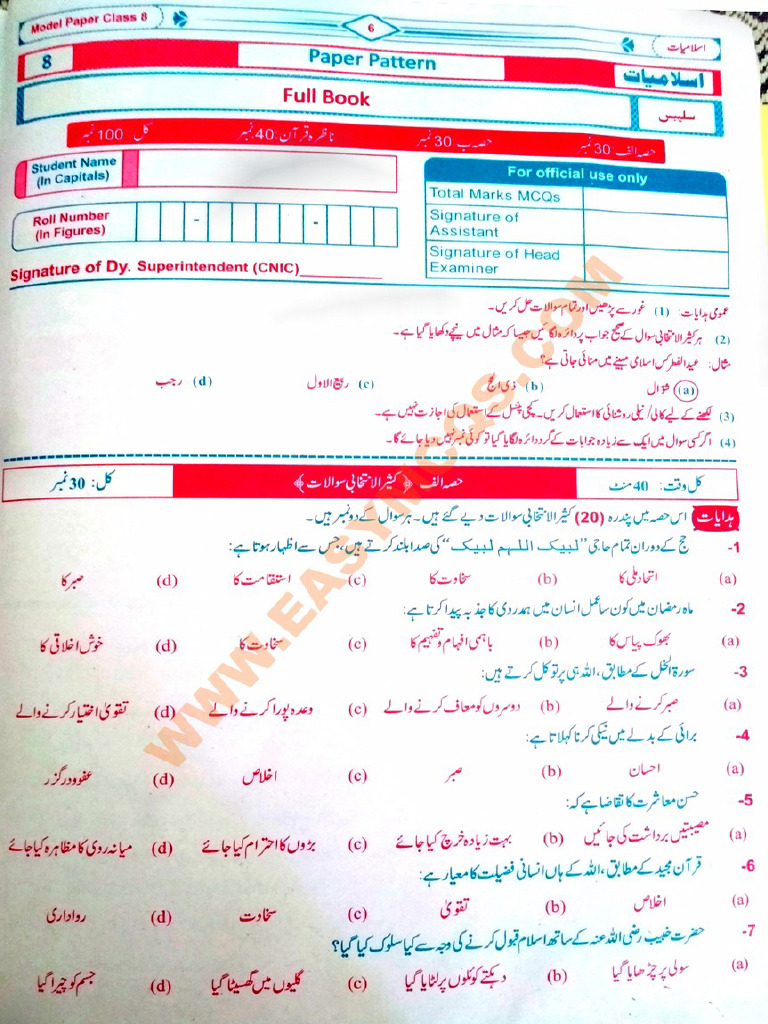 Model Paper Class 8
6
اسلامیات
8
Paper Pattern
اسلامیات
Full Book
سلیبس
حصہ الف: 30 نمبر حصہ ب 30 نمبر ناظرہ قرآن: 40 نمبر کل 100 نمبر
Student Name
(In Capitals)
Roll Number
(In Figures)
- -
Signature of Dy. Superintendent (CNIC)
For official use only
Total Marks MCQs
Signature of
Assistant
Signature of Head
Examiner
عمومی ہدایات: (1) غور سے پڑھیں اور تمام سوالات حل کریں۔
(2) ہر کثیر الانتخابی سوال کے صحیح جواب پر دائرہ لگائیں جیسا کہ مثال میں نیچے دکھایا گیا ہے۔
مثال: عید الفطر کس اسلامی مہینے میں منائی جاتی ہے؟
(a) شوال (b) ذی الحج (c) ربیع الاول (d) رجب
(3) لکھنے کے لیے کالی / نیلی روشنائی کا استعمال کریں۔ کچی پنسل کے استعمال کی اجازت نہیں ہے۔
(4) اگر کسی سوال میں ایک سے زیادہ جوابات کے گرد دائرہ لگایا گیا تو کوئی نمبر نہیں دیا جائے گا۔
کل وقت: 40 منٹ حصہ الف ﴿کثیر الانتخابی سوالات﴾ کل: 30 نمبر
ہدایات اس حصہ میں پندرہ (20) کثیر الانتخابی سوالات دیے گئے ہیں۔ ہر سوال کے دو نمبر ہیں۔
1- حج کے دوران تمام حاجی ”لبیک اللہم لبیک“ کی صدا بلند کرتے ہیں، جس سے اظہار ہوتا ہے:
(a) اتحاد ملی کا (b) سخاوت کا (c) استقامت کا (d) صبر کا
2- ماہ رمضان میں کون سا عمل انسان میں ہمدردی کا جذبہ پیدا کرتا ہے:
(a) بھوک پیاس کا (b) باہمی افہام و تفہیم کا (c) سخاوت کا (d) خوش اخلاقی کا
3- سورۃ النحل کے مطابق، اللہ ہی پر توکل کرتے ہیں:
(a) صبر کرنے والے (b) دوسروں کو معاف کرنے والے (c) وعدہ پورا کرنے والے (d) تقویٰ اختیار کرنے والے
4- برائی کے بدلے میں نیکی کرنا کہلاتا ہے:
(a) احسان (b) صبر (c) اخلاص (d) عفو و درگزر
5- حسن معاشرت کا تقاضا ہے کہ:
(a) مصیبتیں برداشت کی جائیں (b) بہت زیادہ خرچ کیا جائے (c) بڑوں کا احترام کیا جائے (d) میانہ روی کا مظاہرہ کیا جائے
6- قرآن مجید کے مطابق، اللہ کے ہاں انسانی فضیلت کا معیار ہے:
(a) اخلاص (b) تقویٰ (c) سخاوت (d) رواداری
7- حضرت خبیب رضی اللہ عنہ کے ساتھ اسلام قبول کرنے کی وجہ سے کیا سلوک کیا گیا؟
(a) سولی پر چڑھایا گیا (b) دہکتے کوئلوں پر لٹایا گیا (c) گلیوں میں گھسیٹا گیا (d) جسم کو چیرا گیا
WWW.EASYMCQS.COM